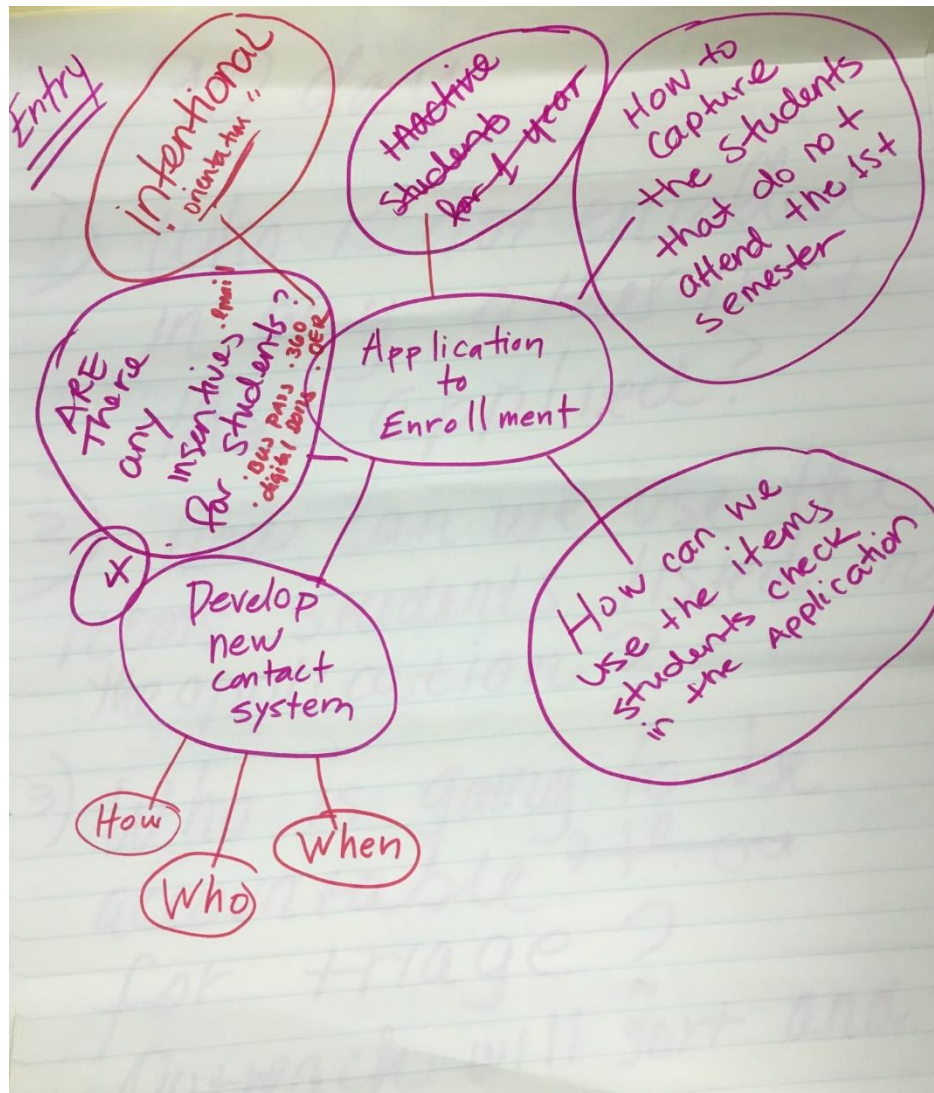 Entry
intentional
orientation
Inactive
students
for 1 year
How to
capture
the students
that do not
attend the 1st
semester
ARE
There
any
insentives
for students?
. email
. Bus pass . 360
. digital . OER
Application
to
Enrollment
Develop
new
contact
system
How
Who
When
How can we
use the items
students check
in the Application
for triage?